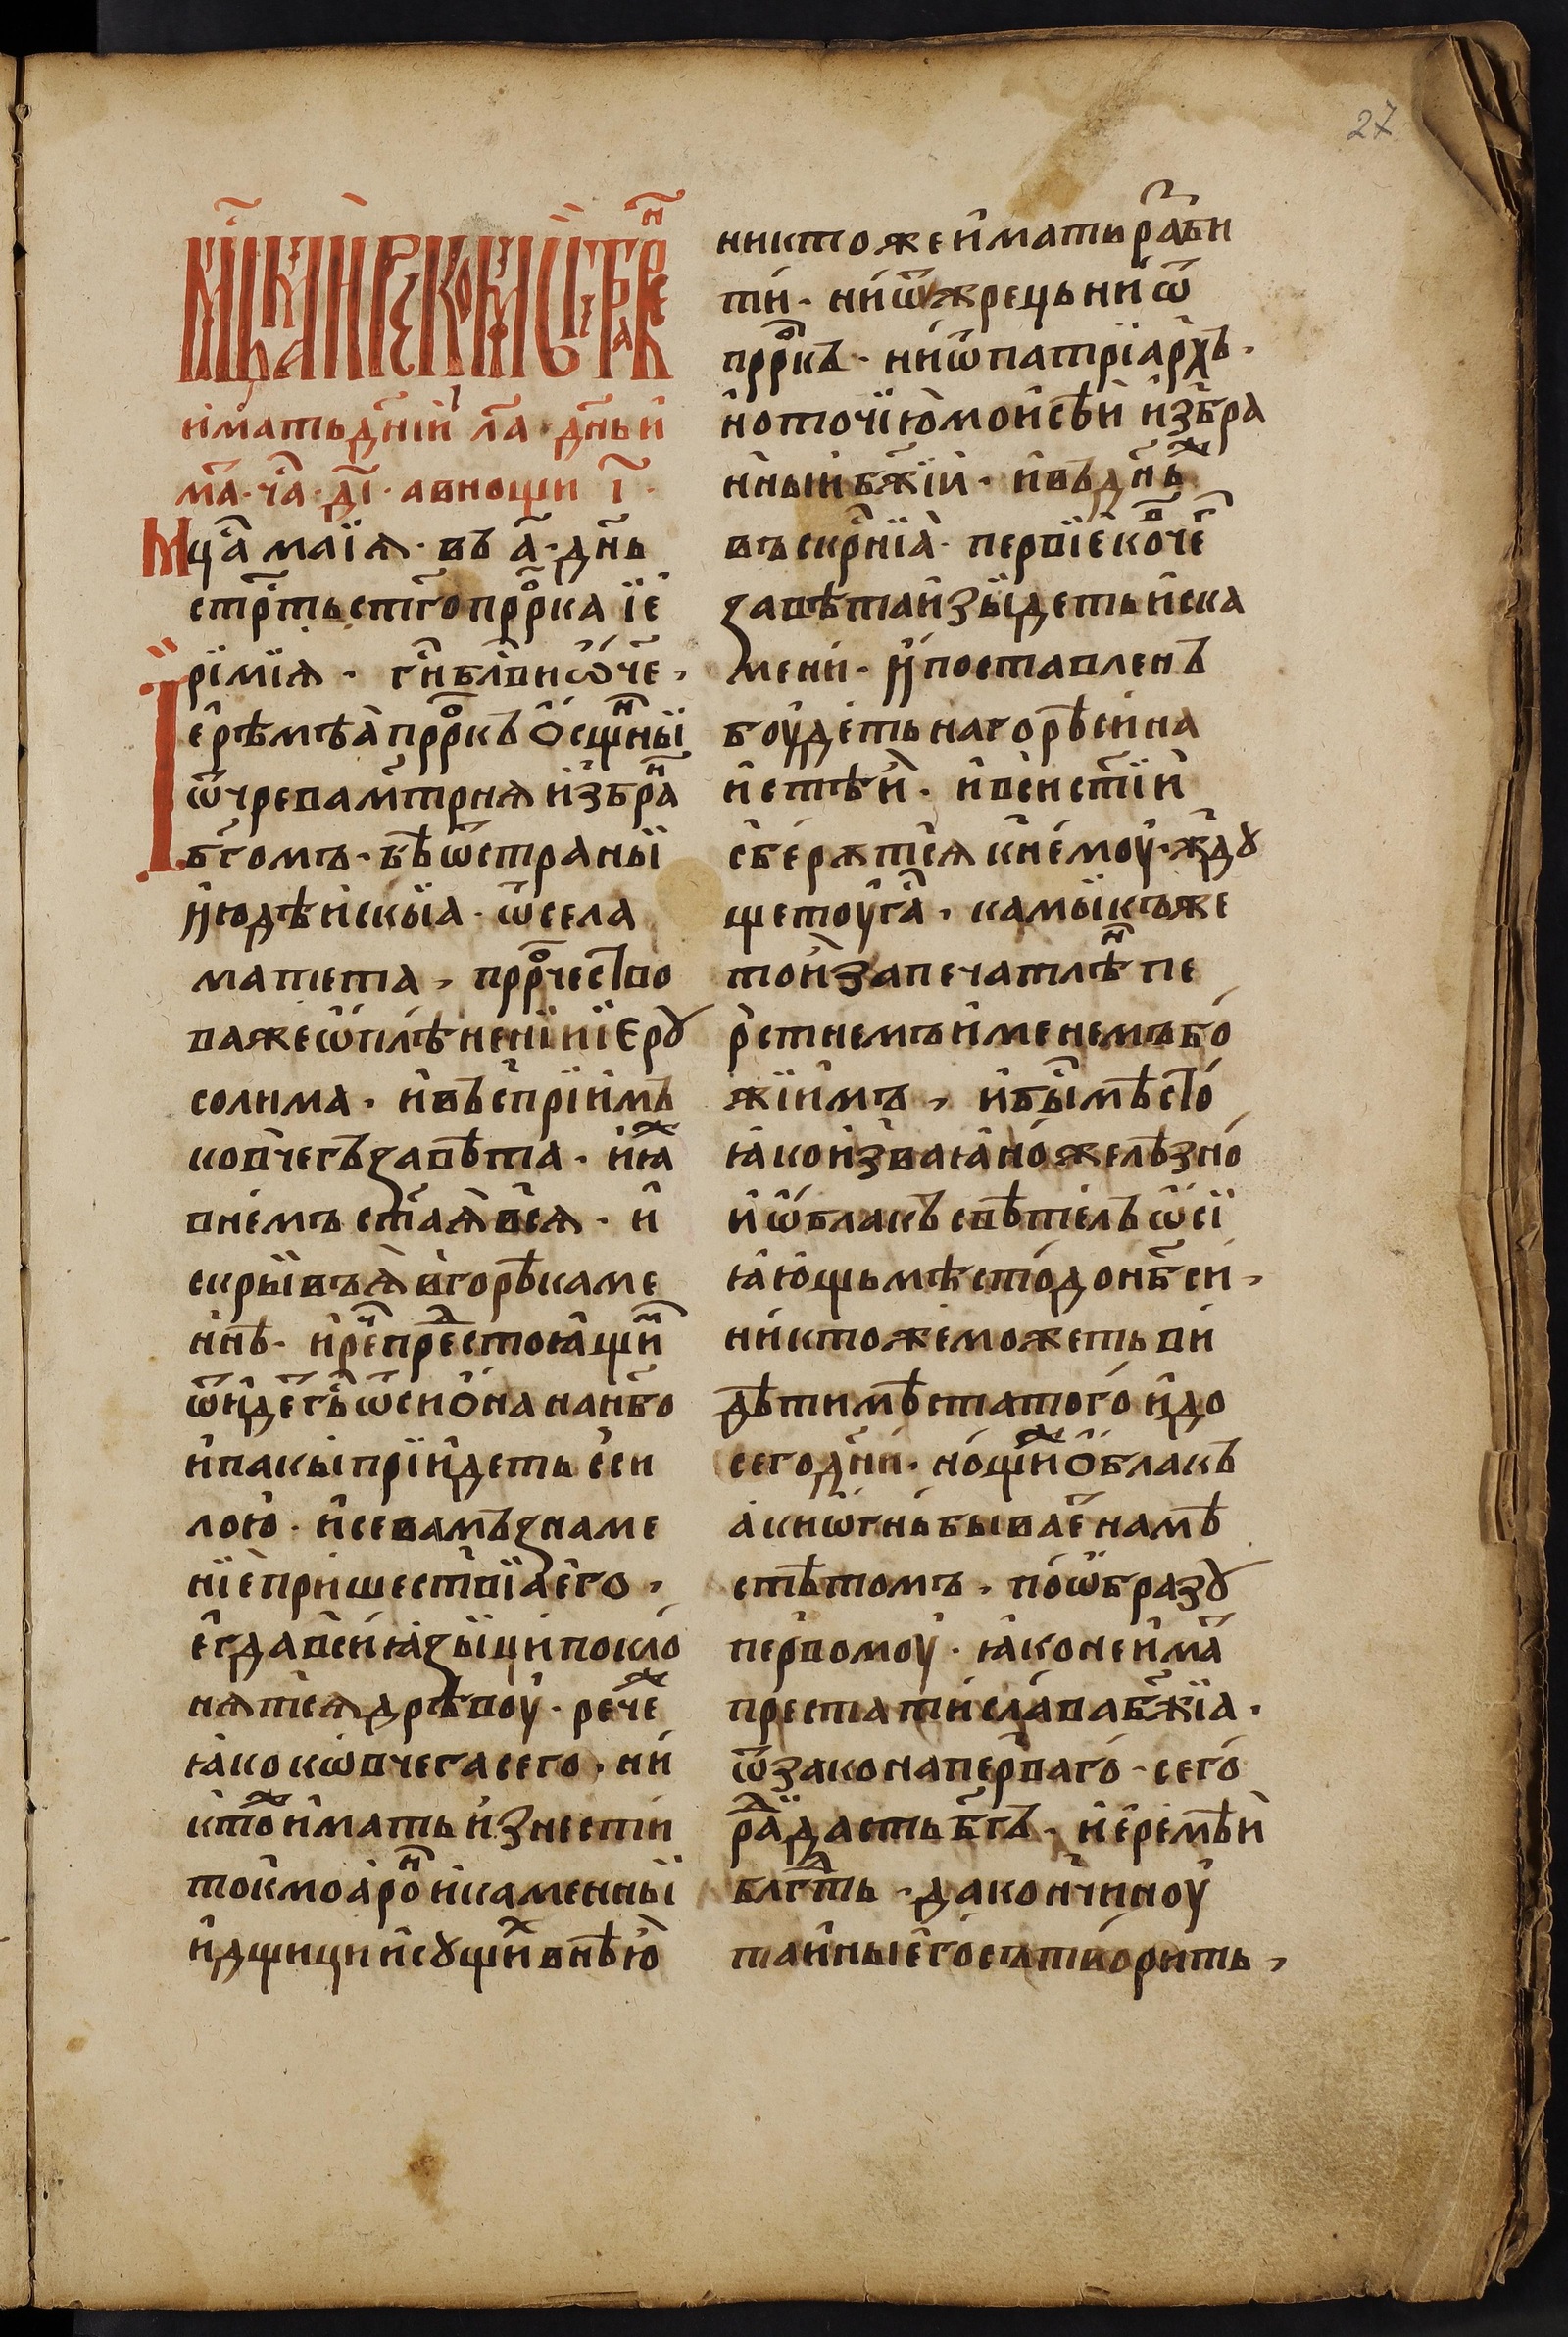 27
мц҃ъ ма́їи рекомыи тра́венъ
и҆мать дн҃і́и ла҃ · дн҃ь и҆
ма҃ · ча҃ · ді҃ · а в нощи і҃ ·
Мцⷭ҇а маїꙗ · въ а҃ · дн҃ь
стрⷭ҇ть ст҃го прⷪ҇рка їе҆
рїмїѧ · гⷭ҇и блⷭ҇ви ѿч҃е ,
Іе҆рѣмѣа̀ прⷪ҇ркъ ѻ҆сщ҃ⷩ҇ныї
ѿ чрева мт҃рнѧ и҆збраⷩ҇
бг҃омъ · бѣ ѿ страны̀
и҆юдѣйскыѧ · ѿ села
матѳета , прⷪ҇рчество
ваше ѡ҆ плѣненїи їерꙋ
солима · и҆ въспрїи́мъ
ковчегъ ꙁавѣта · и҆ ꙗ҆ⷤ
в немъ ст҃аѧ̀ всѧ · и҆
скрывъ ѧ̀ в горѣ каме
ннѣ · и҆ реⷱ҇ преⷣстоꙗ҆щиⷨ
ѿи́де гⷭ҇ь ѿ сиѻ҆на на нб҃о
и҆ пакы прїи́деть с си
лою̀ · и҆ се вамъ ꙁнаме
нїе прише́ствїѧ е҆го ,
е҆гда вси ꙗ҆ꙁыци покло
нѧтсѧ дрѣвоу̀ · рече́ⷤ
ꙗ҆ко кѡвчега сего · ни
ктоⷤ и҆мать и҆знести
токмо а҆роⷩ҇ и҆ каменныї
и҆ дщици и҆ сꙋщиⷯ в не́ю
никтоже и҆мать раꙁги
ти · ни ѿ жрець ни ѿ
прⷪ҇ркъ · ни ѿ патрїа́рхъ ·
но точїю мои҆сѣи и҆збра
нныи бж҃їи · и҆ въ дн҃ьⷤ
въскрⷭ҇нїѧ · первїе коⷡ҇че́гⷭ҇
ꙁавѣта и҆зыїдеть и҆ с ка
мени · и҆ поставленъ
боу́деть на горѣ сина
и҆стѣи · и҆ вси ст҃їи
сберѫтсѧ к не́моу̀ · жⷣꙋ
ще тоу̀ гⷭ҇а , камыкъ же
той запечатлѣⷩ҇ пе
рстнемъ и҆менемъ бо
жїимъ , и҆ быⷭ҇ мѣсто
ꙗ҆ко и҆зваꙗ҆но желѣзно
и҆ ѡ҆блакъ свѣтелъ ѡ҆сї
ꙗ҆ю҆щь мѣсто до нб҃си ,
никтоже можеть ви
дѣти мѣста того и҆ до
сего дн҃и · нощиⷤ ѻ҆блакъ
а҆ки ѡ҆гнь бываеⷮ на мѣ
стѣ томъ , по ѡ҆бразꙋ
первомоу̀ · ꙗ҆ко не и҆маⷮ
престати слава бж҃їѧ ·
ѿ закона перваго · сего
раⷣ дасть бг҃ъ · и҆еремѣи
блгⷣть , да кончиноу̀
тайны е҆го сътворить ,